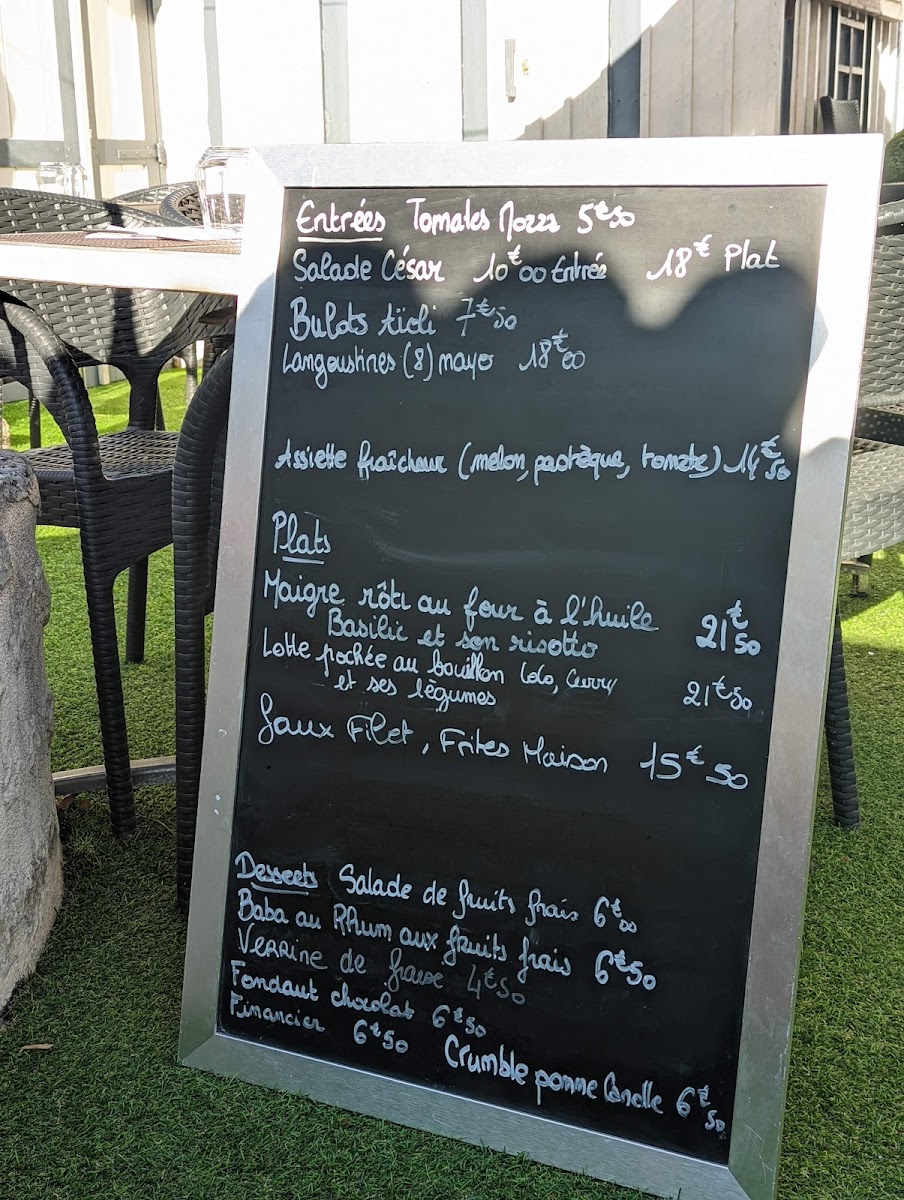 Entrées Tomates Mozza 5€50
Salade César 10€00 Entrée 18€ Plat
Bulots aïoli 7€50
Langoustines (8) mayo 18€00
Assiette fraîcheur (melon, pastèque, tomate) 14€50
Plats
Maigre rôti au four à l'huile 21€50
Basilic et son risotto
Lotte pochée au bouillon Coco, Curry
et ses légumes 21€50
Faux Filet, Frites Maison 15€50
Desserts Salade de fruits frais 6€00
Baba au Rhum aux fruits frais 6€50
Verrine de fraise 4€50
Fondant chocolat 6€50
Financier 6€50 Crumble pomme Canelle 6€50